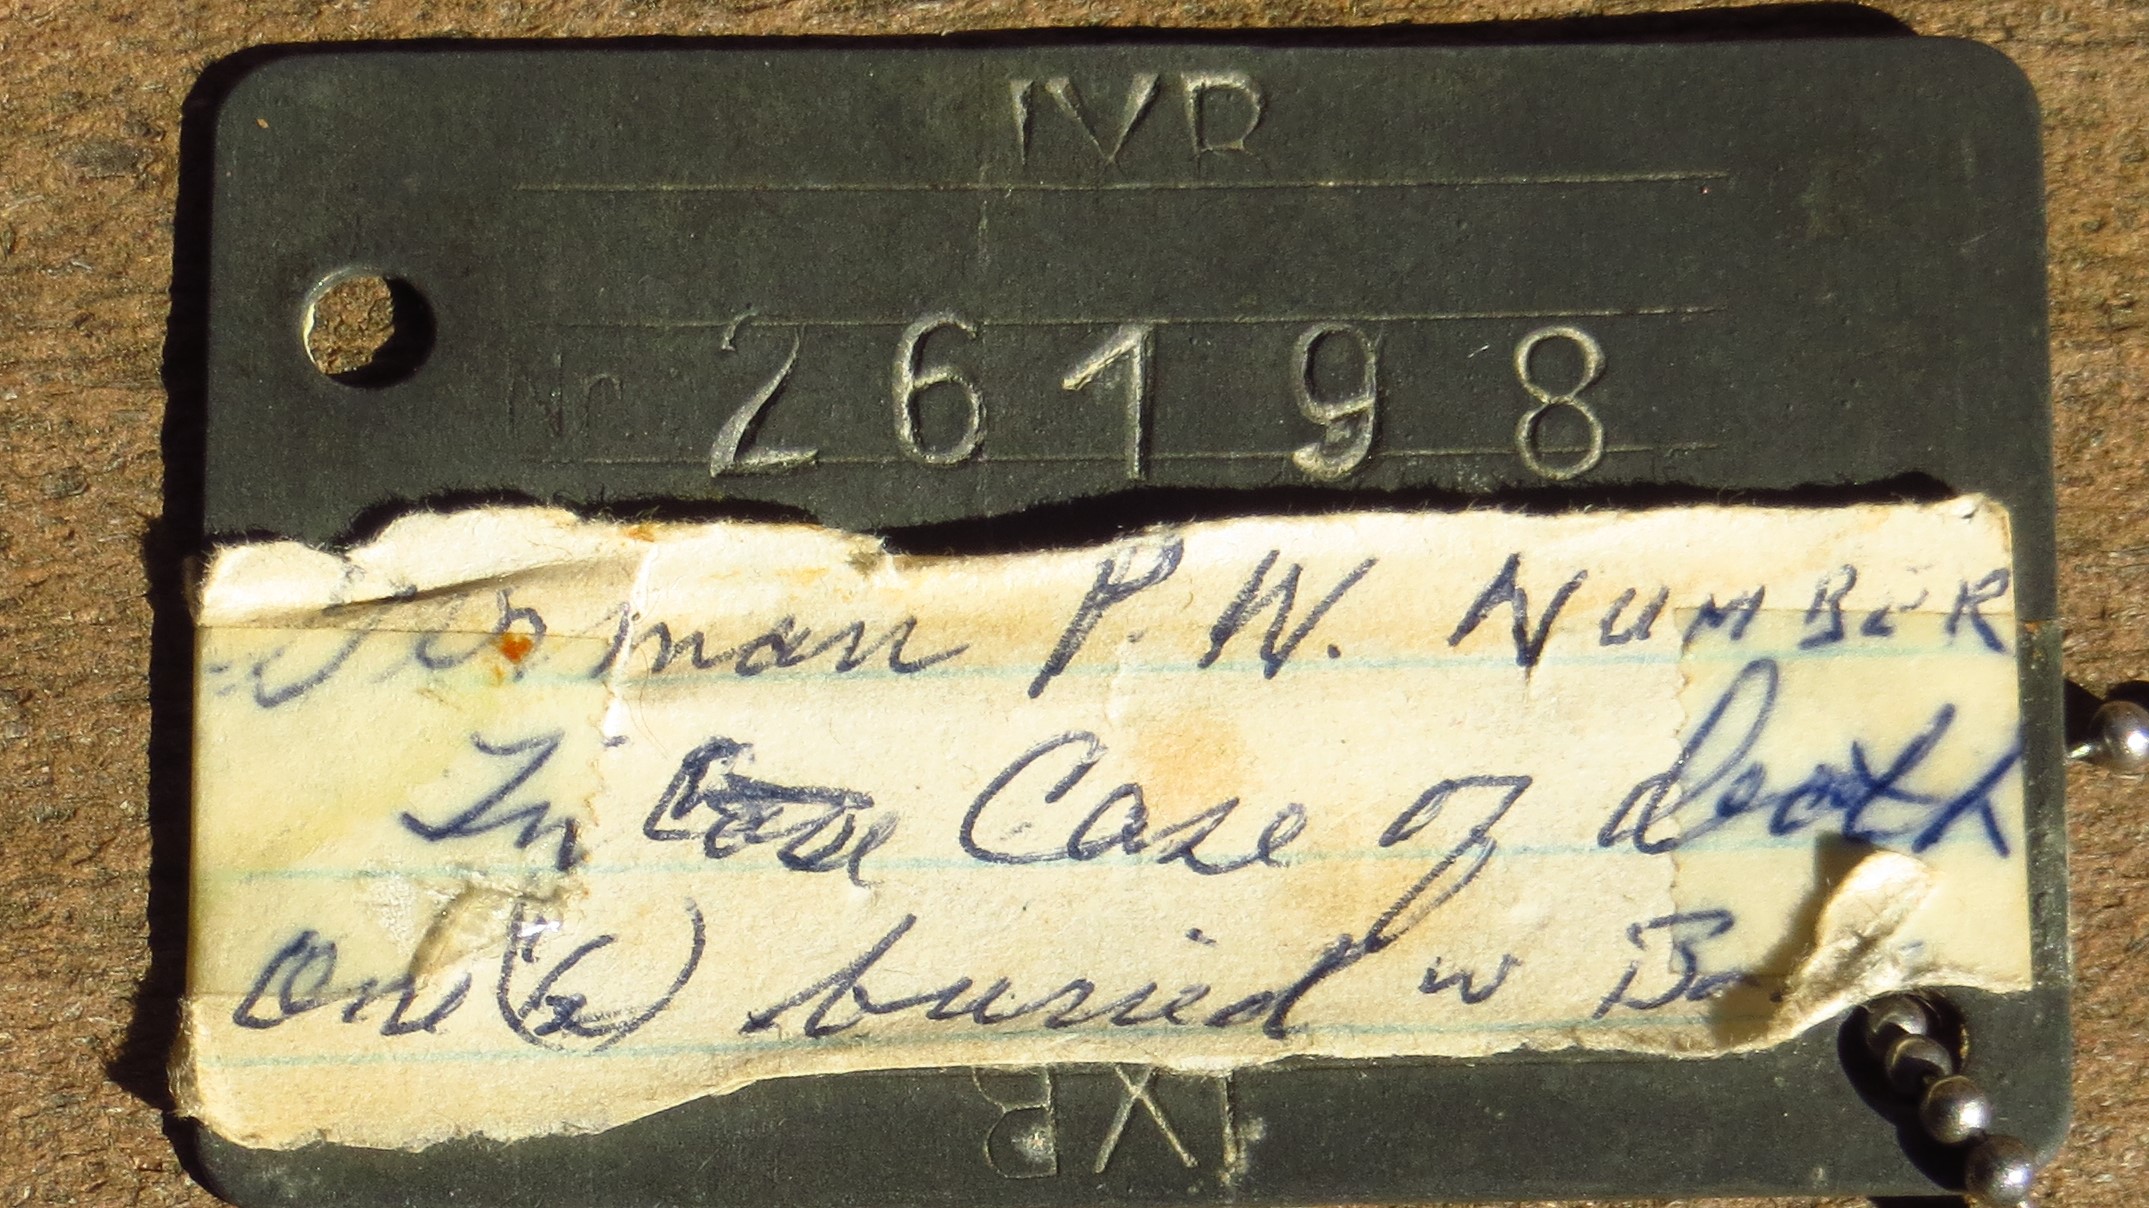 IVB
Nr 26198
German P.W. NUMBER
In Case Case of death
One (½) buried w
IVB